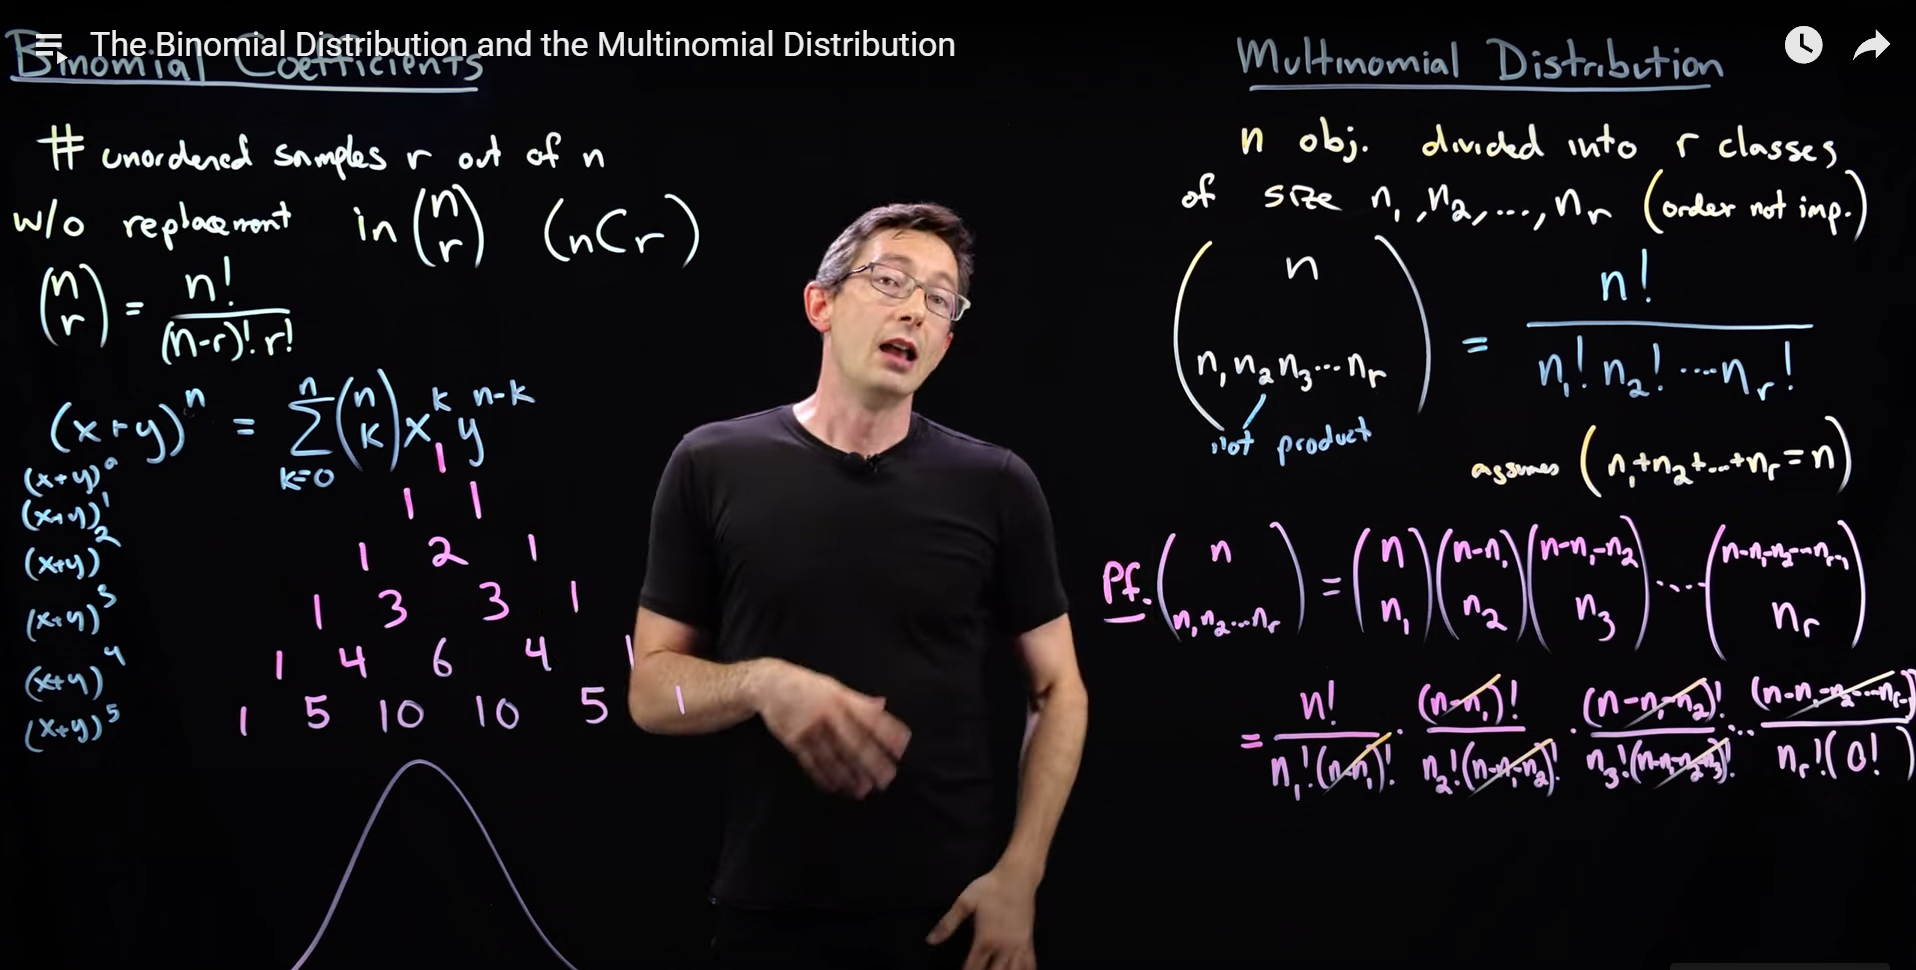 The Binomial Distribution and the Multinomial Distribution
Binomial Coefficients
# unordered samples r out of n
w/o replacement in (n r) (nCr)
(n r) = n! / (n-r)! r!
(x+y)^n = Σ_{k=0}^{n} (n k) x^k y^{n-k}
(x+y)^0
(x+y)^1
(x+y)^2
(x+y)^3
(x+y)^4
(x+y)^5
1
1 1
1 2 1
1 3 3 1
1 4 6 4 1
1 5 10 10 5 1
Multinomial Distribution
n obj. divided into r classes
of size n₁, n₂, ..., nᵣ (order not imp.)
(n n₁ n₂ n₃ ... nᵣ) = n! / n₁! n₂! ... nᵣ!
not product
assumes (n₁+n₂+...+nᵣ=n)
Pf. (n n₁ n₂ ... nᵣ) = (n n₁) (n-n₁ n₂) (n-n₁-n₂ n₃) ... (n-n₁-n₂-...-nᵣ₋₁ nᵣ)
= n! / n₁!(n-n₁)! · (n-n₁)! / n₂!(n-n₁-n₂)! · (n-n₁-n₂)! / n₃!(n-n₁-n₂-n₃)! ... (n-n₁-n₂-...-nᵣ₋₁) / nᵣ!(0!)